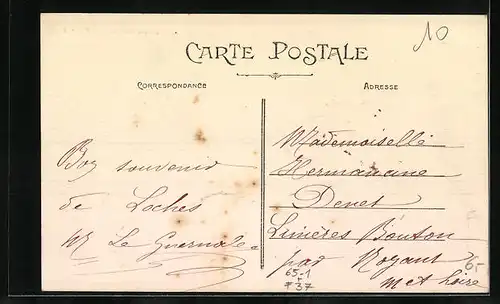 10
CARTE POSTALE
CORRESPONDANCE
ADRESSE
Bon souvenir
de Loches
Mademoiselle
Hermancine
Denet
Linières Bouton
par Noyant
M et Loire
65-1
37
6.-